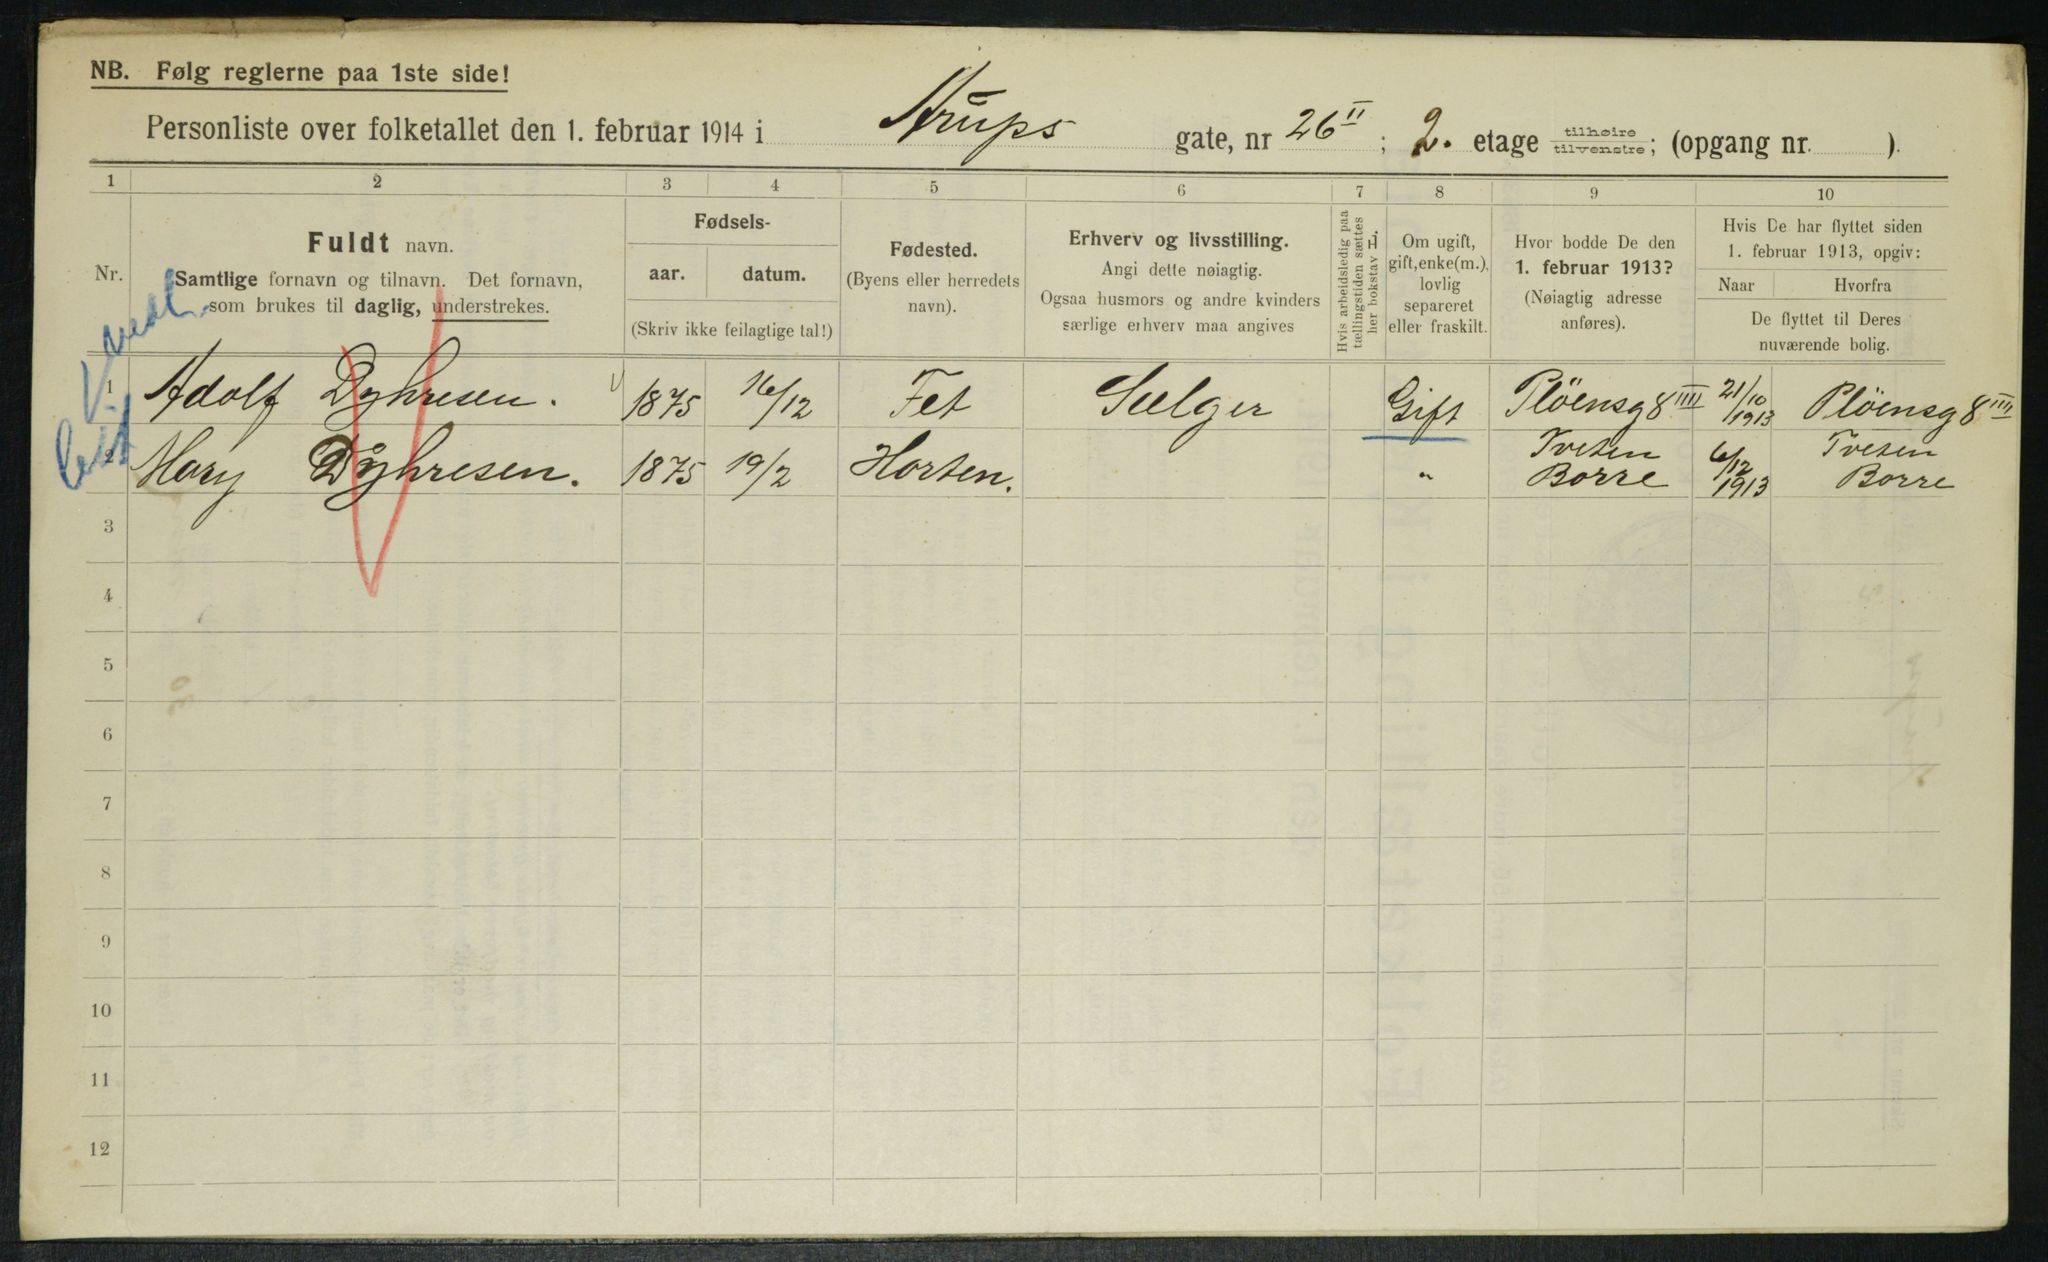 NB. Følg reglerne paa 1ste side!
Personliste over folketallet den 1. februar 1914 i Arups gate, nr 26 II ; 2. etage tilhøire tilvenstre; (opgang nr. ).
1 2 3 4 5 6 7 8 9 10
Nr.
Fuldt navn.
Samtlige fornavn og tilnavn. Det fornavn,
som brukes til daglig, understrekes.
Fødsels-
aar. datum.
(Skriv ikke feilagtige tal!)
Fødested.
(Byens eller herredets
navn).
Erhverv og livsstilling.
Angi dette nøiagtig.
Ogsaa husmors og andre kvinders
særlige erhverv maa angives
Hvis arbeidsledig paa
tællingstiden sættes
her bokstav L.
Om ugift,
gift, enke(m.),
lovlig
separeret
eller fraskilt.
Hvor bodde De den
1. februar 1913?
(Nøiagtig adresse
anføres).
Hvis De har flyttet siden
1. februar 1913, opgiv:
Naar Hvorfra
De flyttet til Deres
nuværende bolig.
1 Adolf Dyhresen. 1875 16/12 Fet Sælger Gift Plöensg 8 IIII 21/10 1913 Plöensg 8 IIII
2 Mary Dyhresen. 1875 19/2 Horten. " Tveten Borre 6/12 1913 Tveten Borre
3
4
5
6
7
8
9
10
11
12